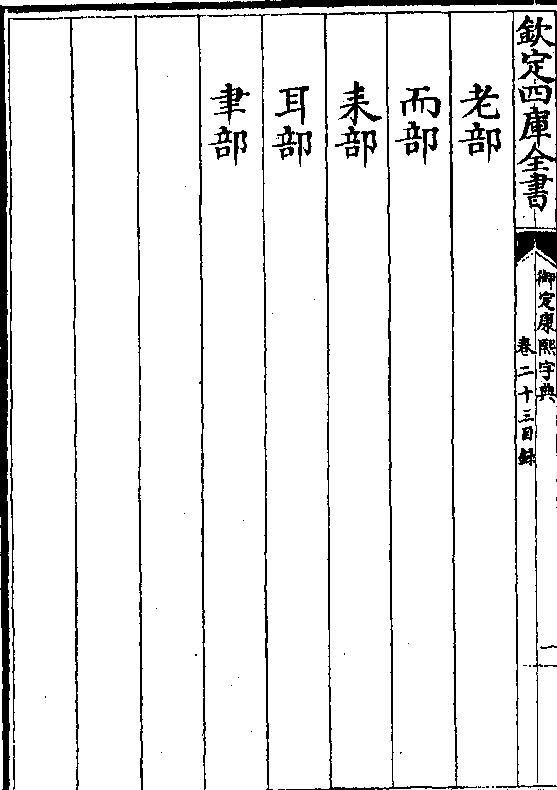 欽定四庫全書
御定康熙字典
卷二十三目録
一
老部
而部
耒部
耳部
聿部